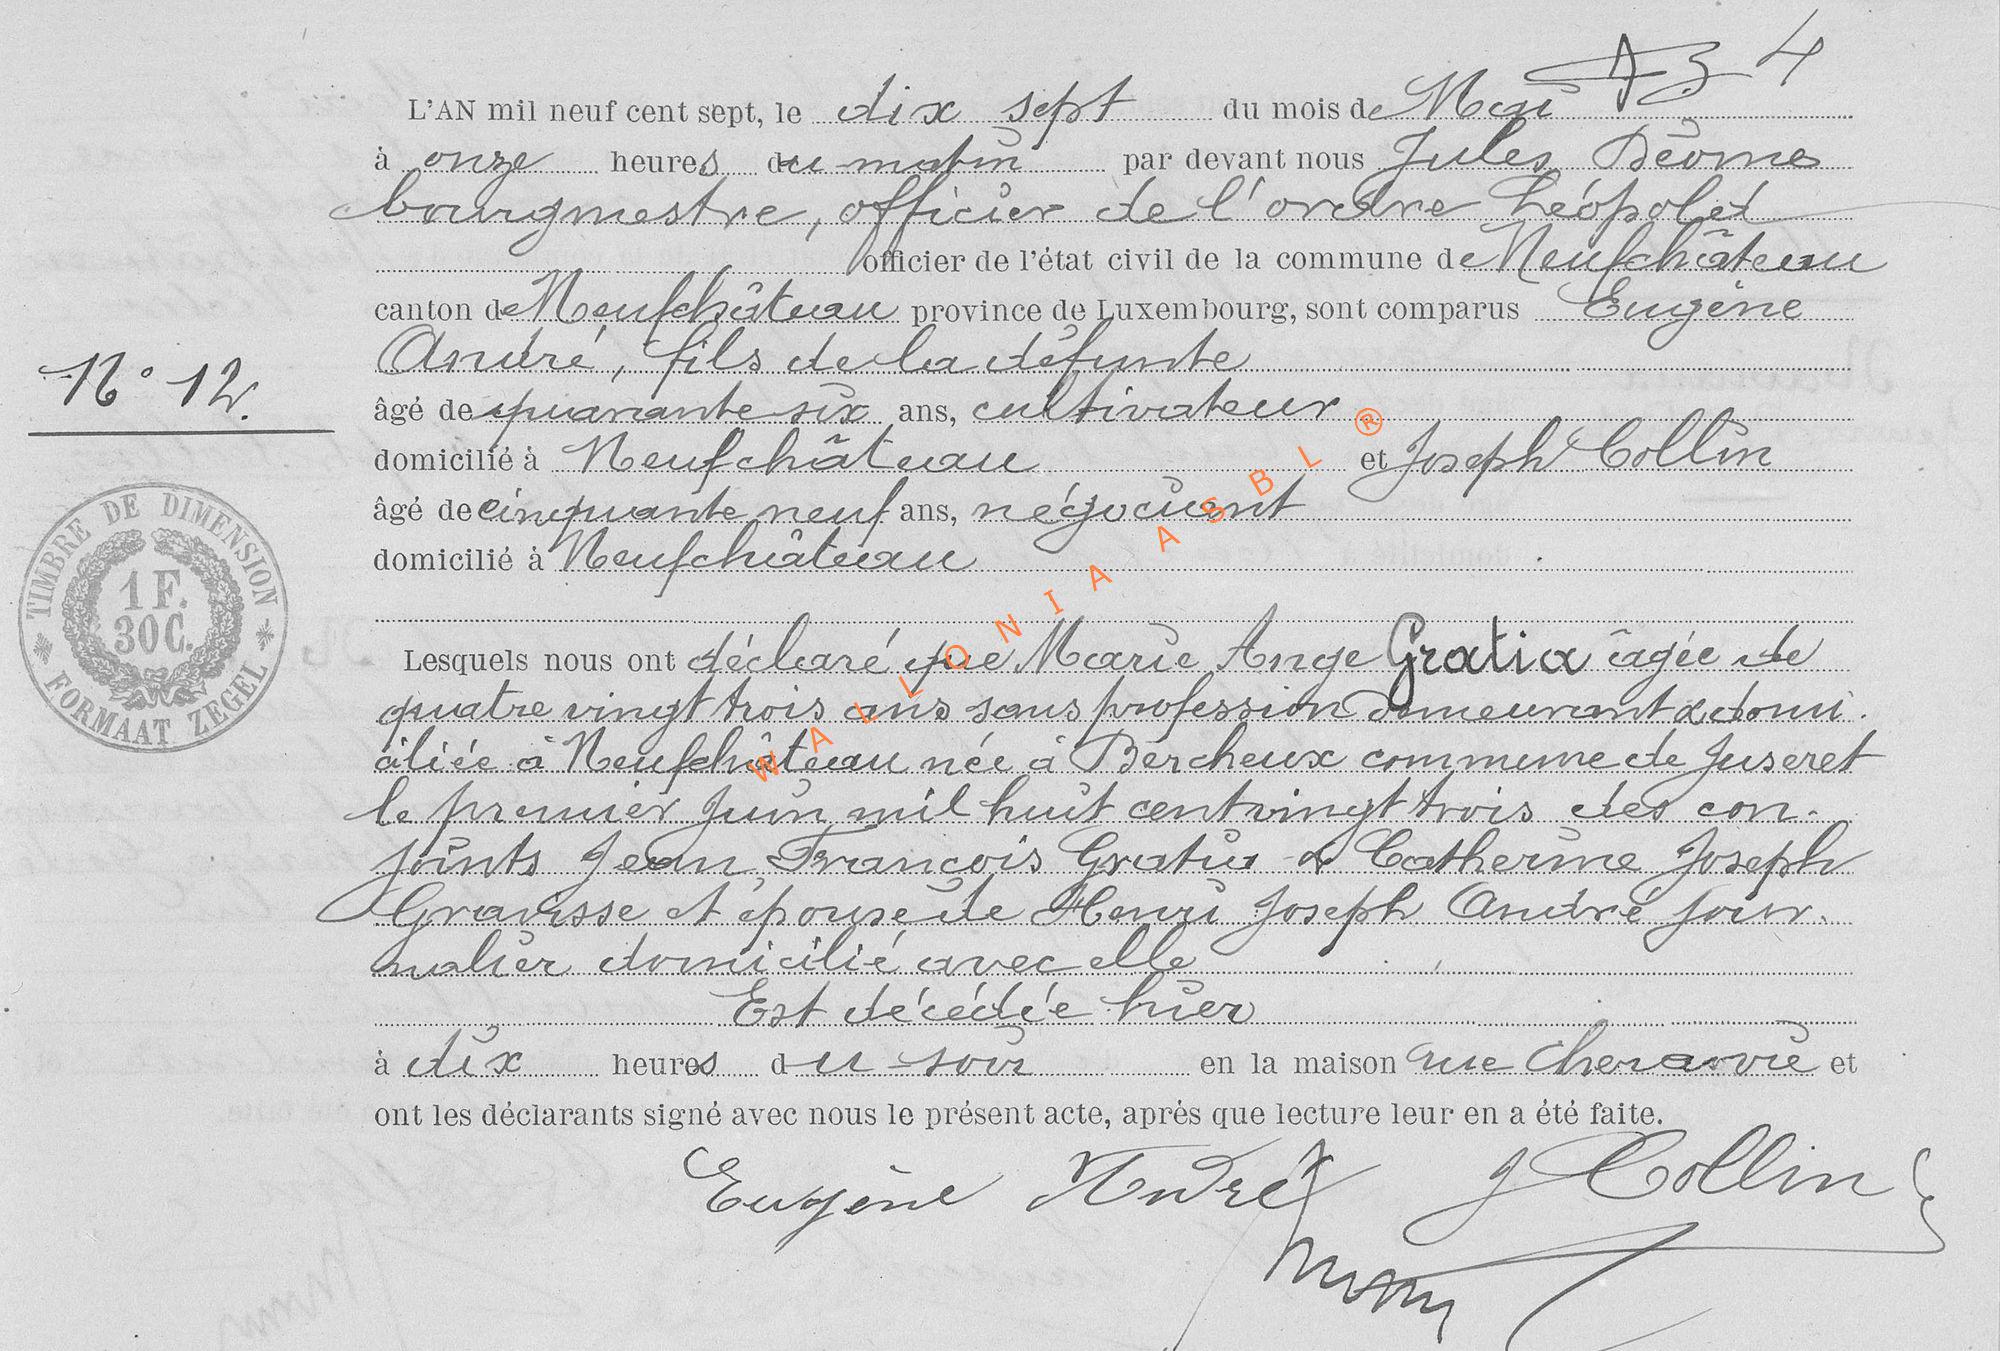 4
L'AN mil neuf cent sept, le dix sept du mois de Mai
à onze heures du matin par devant nous Jules
bourgmestre, officier de l'ordre Léopold
officier de l'état civil de la commune de Neufchâteau
canton de Neufchâteau province de Luxembourg, sont comparus Eugène
André, fils de la défunte
N° 12.
âgé de quarante six ans, cultivateur
domicilié à Neufchâteau et Joseph Collin
âgé de cinquante neuf ans, négociant
domicilié à Neufchâteau
TIMBRE DE DIMENSION
1 F.
30 C.
FORMAAT ZEGEL
WALLONIA ASBL ®
Lesquels nous ont déclaré que Marie Ange Gratia âgée de
quatre vingt trois ans sans profession demeurant & domi
ciliée à Neufchâteau née à Bercheux commune de Juseret
le premier Juin mil huit cent vingt trois des con-
joints Jean François Gratia & Catherine Joseph
Gravisse et épouse de Henri Joseph André jour-
nalier domicilié avec elle
Est décédée hier
à dix heures du soir en la maison rue et
ont les déclarants signé avec nous le présent acte, après que lecture leur en a été faite.
Eugène André J Collin